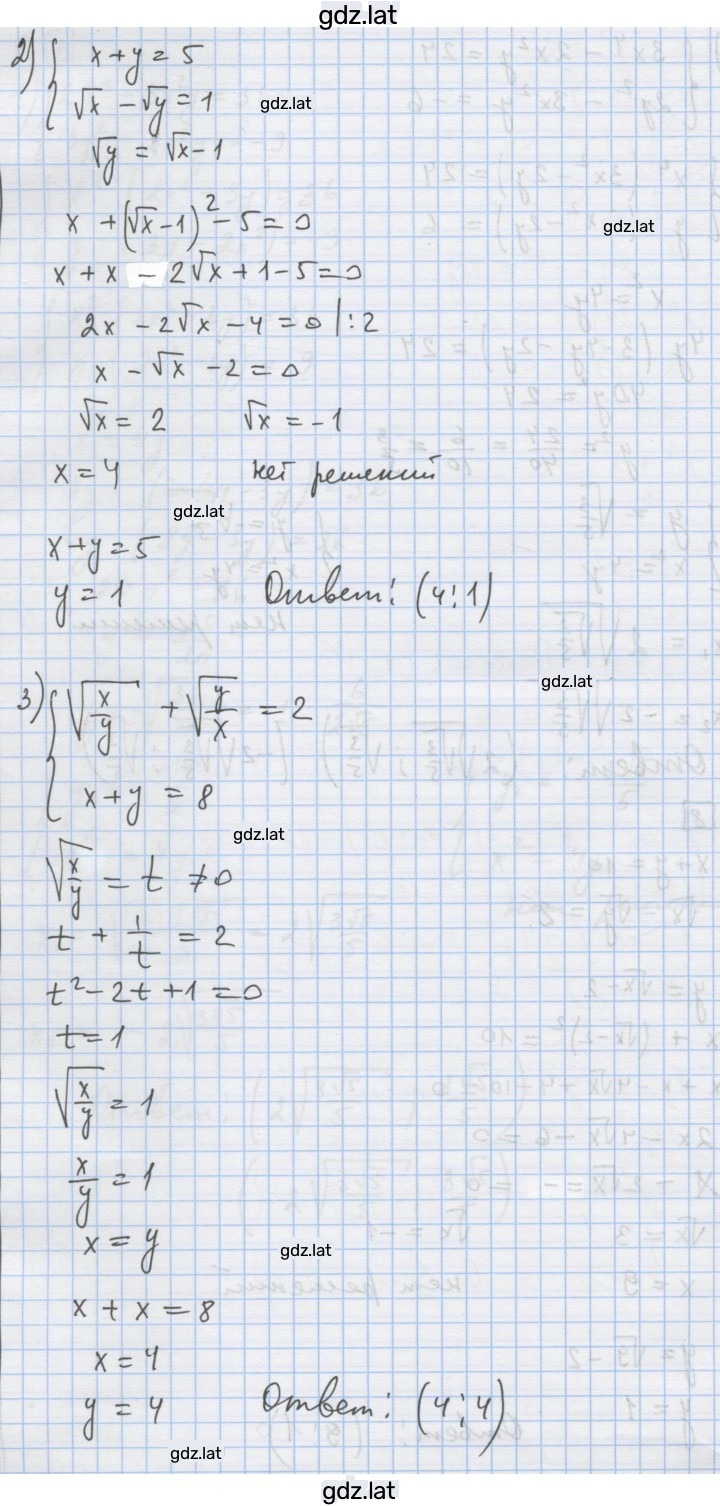 gdz.lat
2) { x + y = 5
√x - √y = 1
gdz.lat
√y = √x - 1
x + (√x - 1)² - 5 = 0
gdz.lat
x + x - 2√x + 1 - 5 = 0
2x - 2√x - 4 = 0 | : 2
x - √x - 2 = 0
√x = 2 √x = -1
x = 4 нет решений
gdz.lat
x + y = 5
y = 1 Ответ: (4; 1)
gdz.lat
3) { √(x/y) + √(y/x) = 2
x + y = 8
gdz.lat
√(x/y) = t ≠ 0
t + 1/t = 2
t² - 2t + 1 = 0
t = 1
√(x/y) = 1
x/y = 1
x = y
gdz.lat
x + x = 8
x = 4
y = 4 Ответ: (4; 4)
gdz.lat
gdz.lat